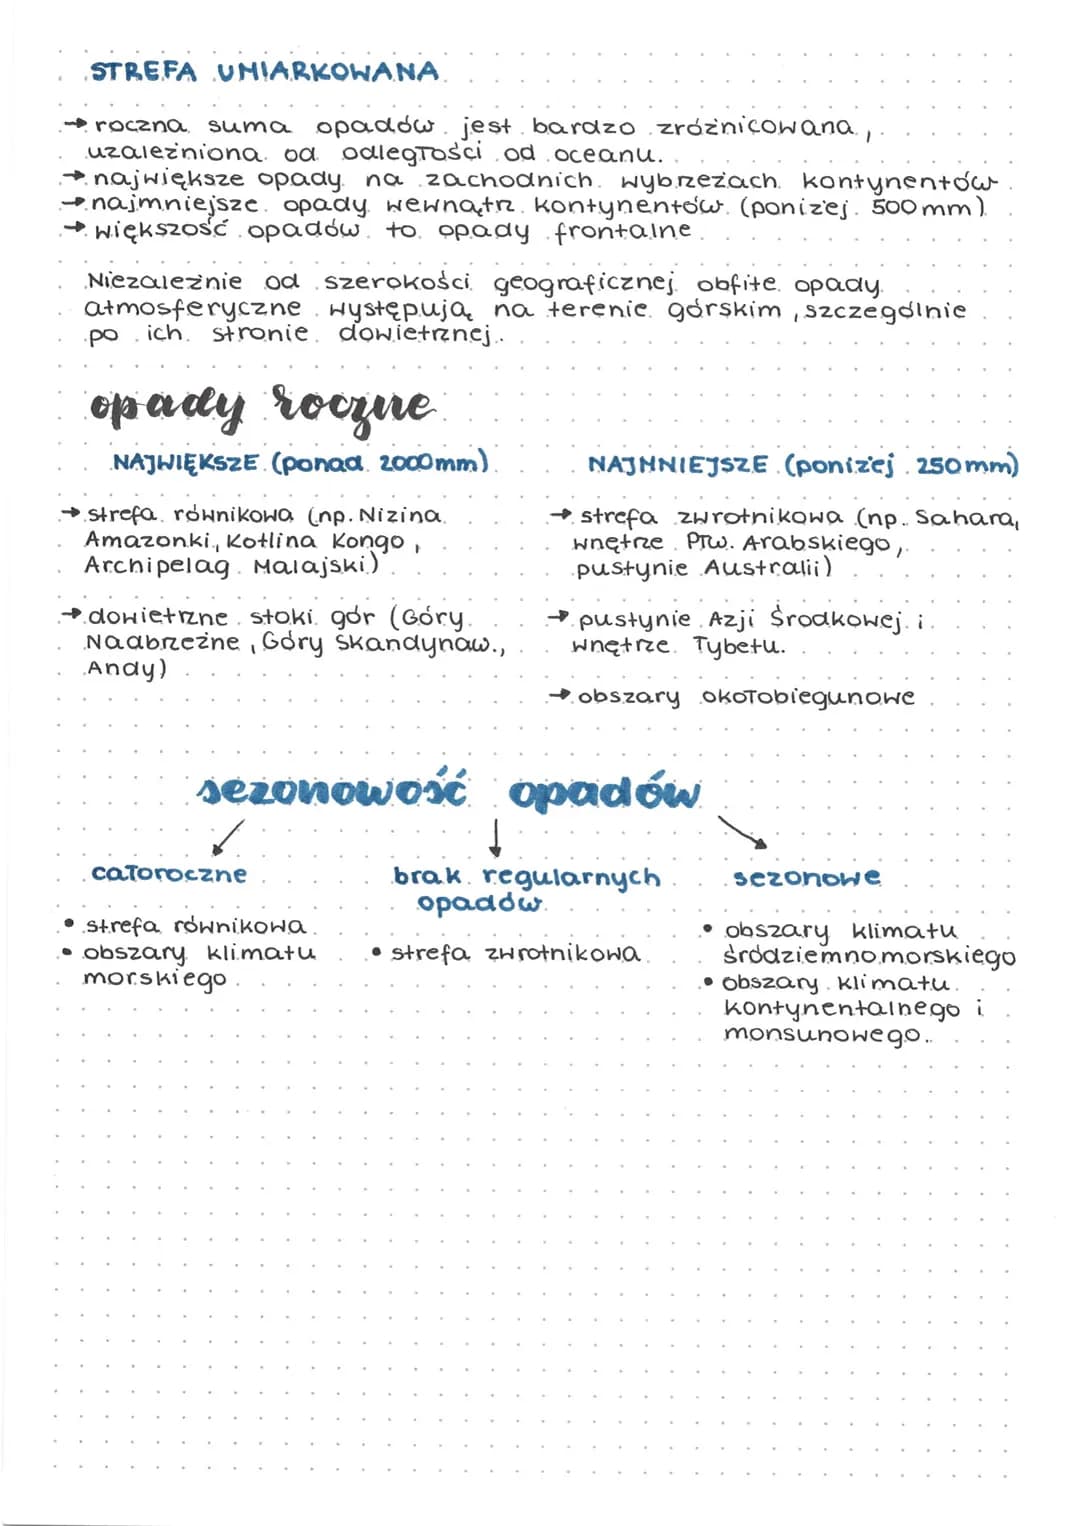 STREFA UMIARKOWANA
→ roczna suma opadów jest bardzo zróżnicowana,
uzależniona od odległości od oceanu.
→ największe opady na zachodnich wybrzeżach kontynentów
→ najmniejsze opady wewnątrz kontynentów (poniżej 500 mm)
→ większość opadów to opady frontalne
Niezależnie od szerokości geograficznej obfite opady
atmosferyczne występują na terenie górskim, szczególnie
po ich stronie dowietrznej.
opady roczne
NAJWIĘKSZE (ponad 2000mm)
→ strefa równikowa (np. Nizina
Amazonki, Kotlina Kongo,
Archipelag Malajski)
→ dowietrzne stoki gór (Góry
Nadbrzeżne, Góry Skandynaw.,
Andy)
NAJMNIEJSZE (poniżej 250mm)
→ strefa zwrotnikowa (np. Sahara,
wnętrze Płw. Arabskiego,
pustynie Australii)
→ pustynie Azji Środkowej i
wnętrze Tybetu.
→ obszary okołobiegunowe
sezonowość opadów
całoroczne
• strefa równikowa
• obszary klimatu
morskiego
brak regularnych
opadów
• strefa zwrotnikowa
sezonowe
• obszary klimatu
śródziemnomorskiego
• obszary klimatu
kontynentalnego i
monsunowego.